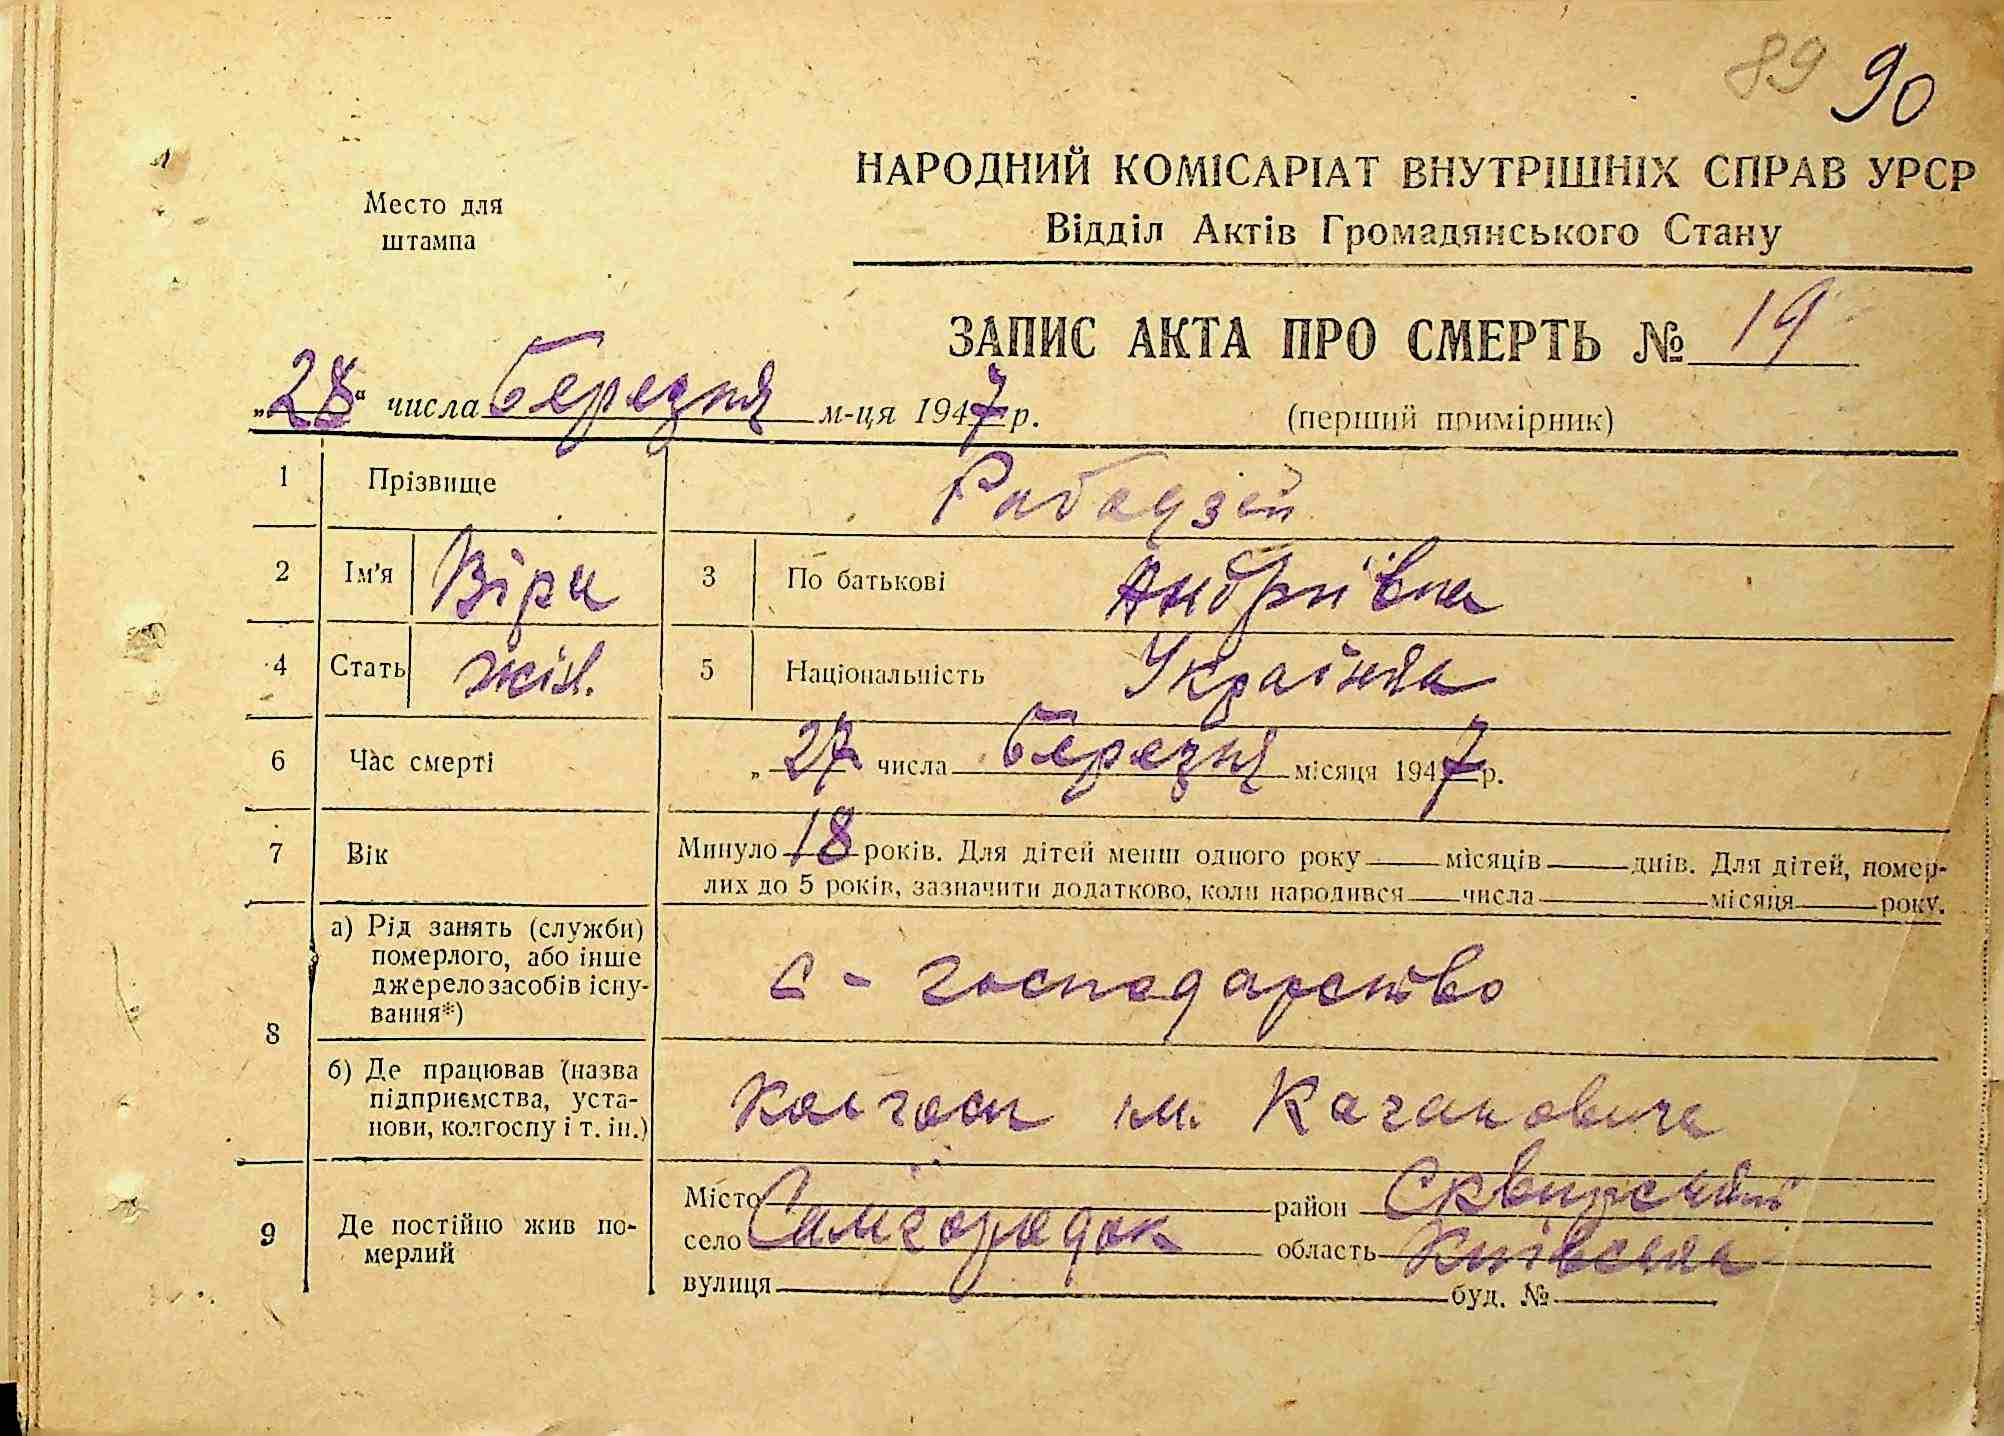 89 90
Место для
штампа
НАРОДНИЙ КОМІСАРІАТ ВНУТРІШНІХ СПРАВ УРСР
Відділ Актів Громадянського Стану
ЗАПИС АКТА ПРО СМЕРТЬ № 19
„28“ числа березня м-ця 1947 р.
(перший примірник)
1 Прізвище Рабодзей
2 Ім'я Віра 3 По батькові Андріївна
4 Стать жін. 5 Національність Українка
6 Час смерті „ 27 числа березня місяця 1947 р.
7 Вік Минуло 18 років. Для дітей менш одного року місяців днів. Для дітей, помер-
лих до 5 років, зазначити додатково, коли народився числа місяця року.
8 а) Рід занять (служби)
померлого, або інше
джерело засобів існу-
вання*)
с - господарство
б) Де працював (назва
підприємства, уста-
нови, колгоспу і т. ін.)
Колгосп ім. Кагановича
9 Де постійно жив по-
мерлий
Місто район Сквирський
село Самгородок область Київська
вулиця буд. №